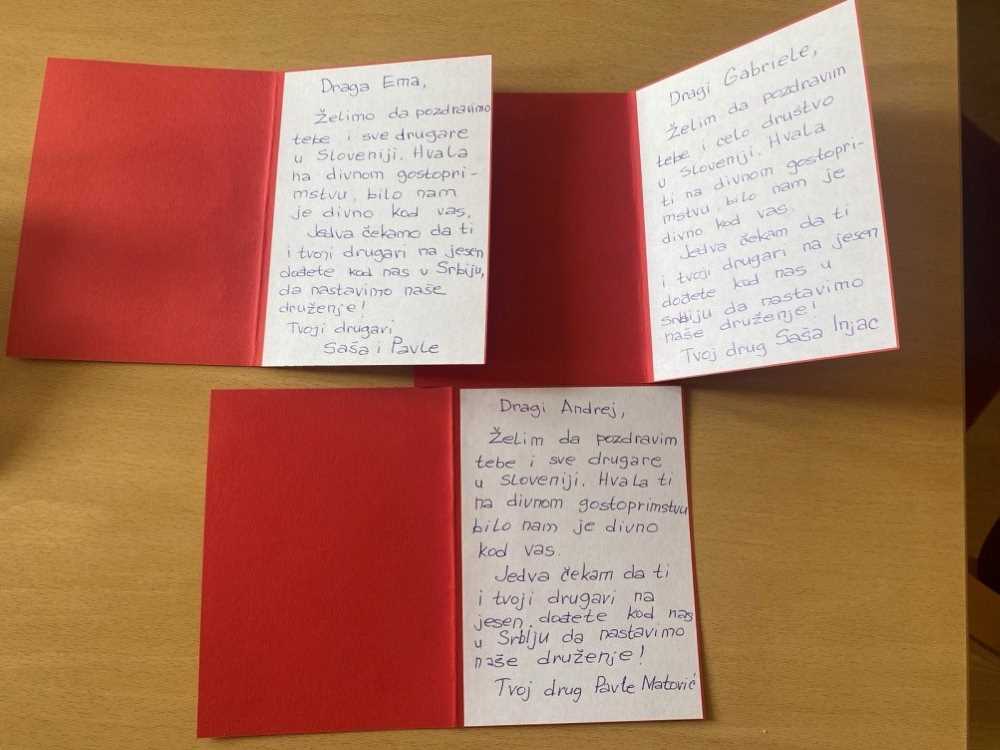 Draga Ema,
Želimo da pozdravimo
tebe i sve drugare
u Sloveniji. Hvala
na divnom gostopri-
mstvu, bilo nam
je divno kod vas.
Jedva čekamo da ti
i tvoji drugari na jesen
dođete kod nas u Srbiju,
da nastavimo naše
druženje!
Tvoji drugari
Saša i Pavle
Dragi Gabriele,
Želim da pozdravim
tebe i celo društvo
u Sloveniji. Hvala
ti na divnom gostopri-
mstvu, bilo nam je
divno kod vas.
Jedva čekam da ti
i tvoji drugari na jesen
dođete kod nas u
Srbiju da nastavimo
naše druženje!
Tvoj drug Saša Injac
Dragi Andrej,
Želim da pozdravim
tebe i sve drugare
u Sloveniji. Hvala ti
na divnom gostoprimstvu
bilo nam je divno
kod vas.
Jedva čekam da ti
i tvoji drugari na
jesen dođete kod nas
u Srbiju da nastavimo
naše druženje!
Tvoj drug Pavle Matović